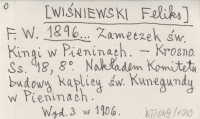 [WIŚNIEWSKI Feliks]
F. W. 1896... Zameczek św.
Kingi w Pieninach. – Krosno.
Ss. 18, 8°. Nakładem Komitetu
budowy kaplicy św. Kunegundy
w Pieninach.
Wyd. 3 w 1906.